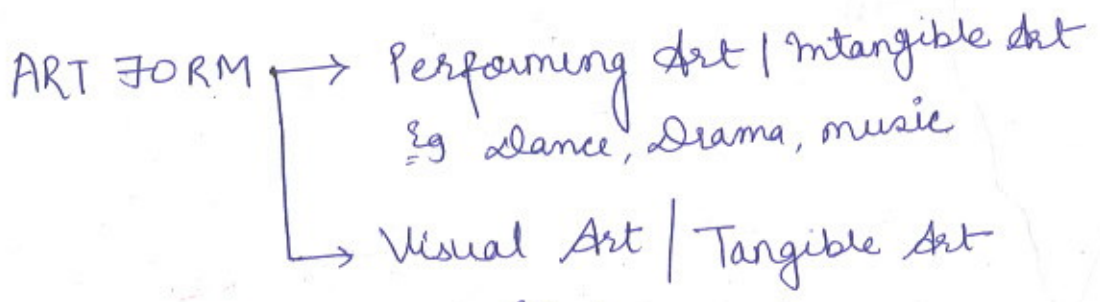 ART FORM → Performing Art | Intangible Art
Eg Dance, Drama, music
→ Visual Art | Tangible Art